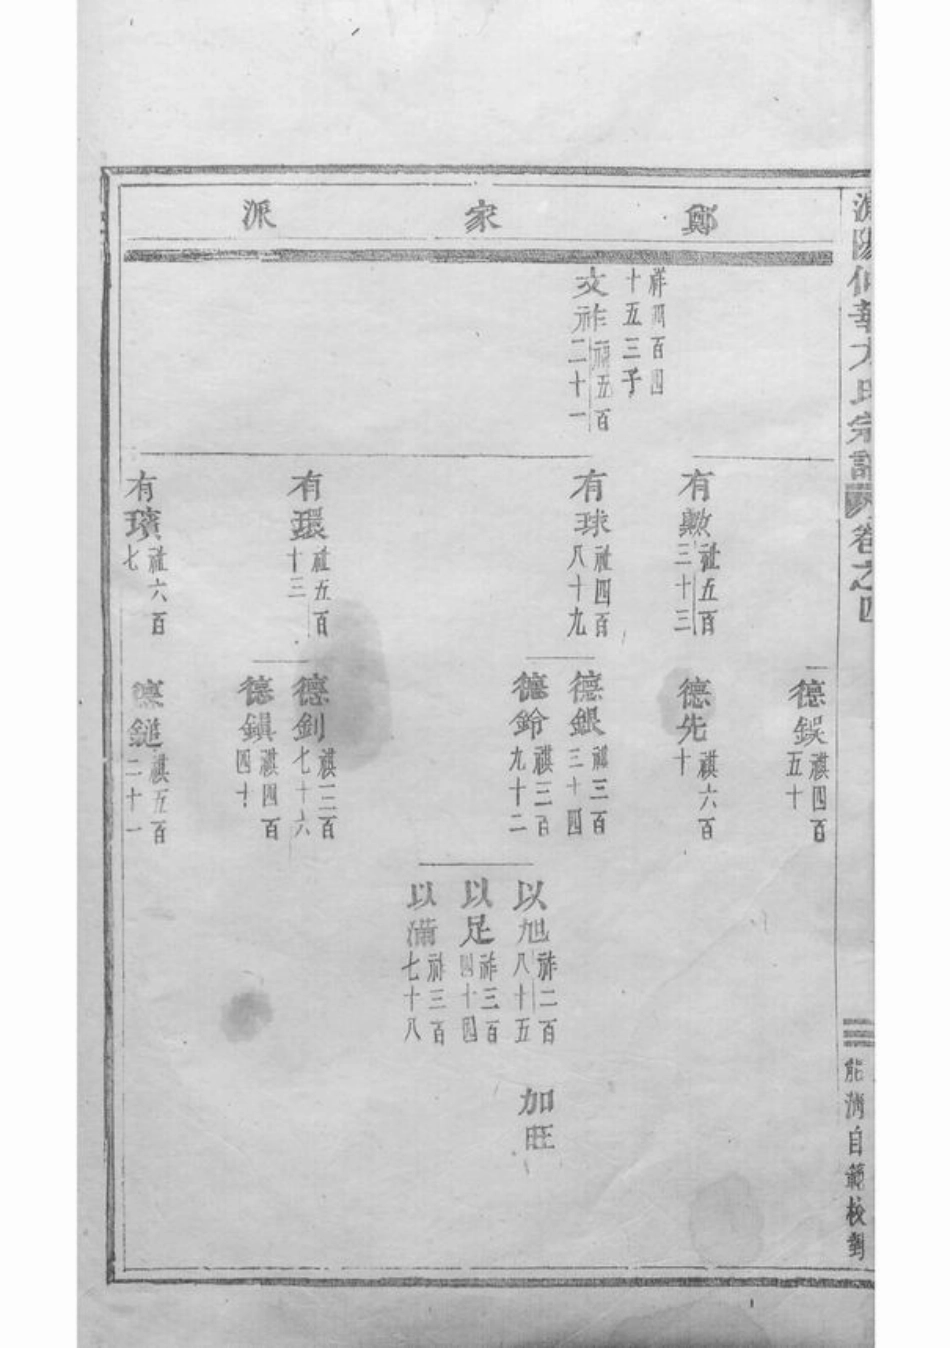 陽仙華方氏宗譜
卷之四
能清自範校對
鄭家派
祥四百四
十五三子
文祚禎五百
二十一
有勲祉五百
三十三
有球祉四百
八十九
有環祉五百
十三
有璸祉六百
七
德鋘祺四百
五十
德先祺六百
十
德銀祺三百
三十四
德鈴祺三百
九十二
德釗祺三百
七十六
德鎭祺四百
四十
德鎚祺五百
二十一
以旭祚二百
八十五
以足祚三百
四十四
以滿祚三百
七十八
加旺